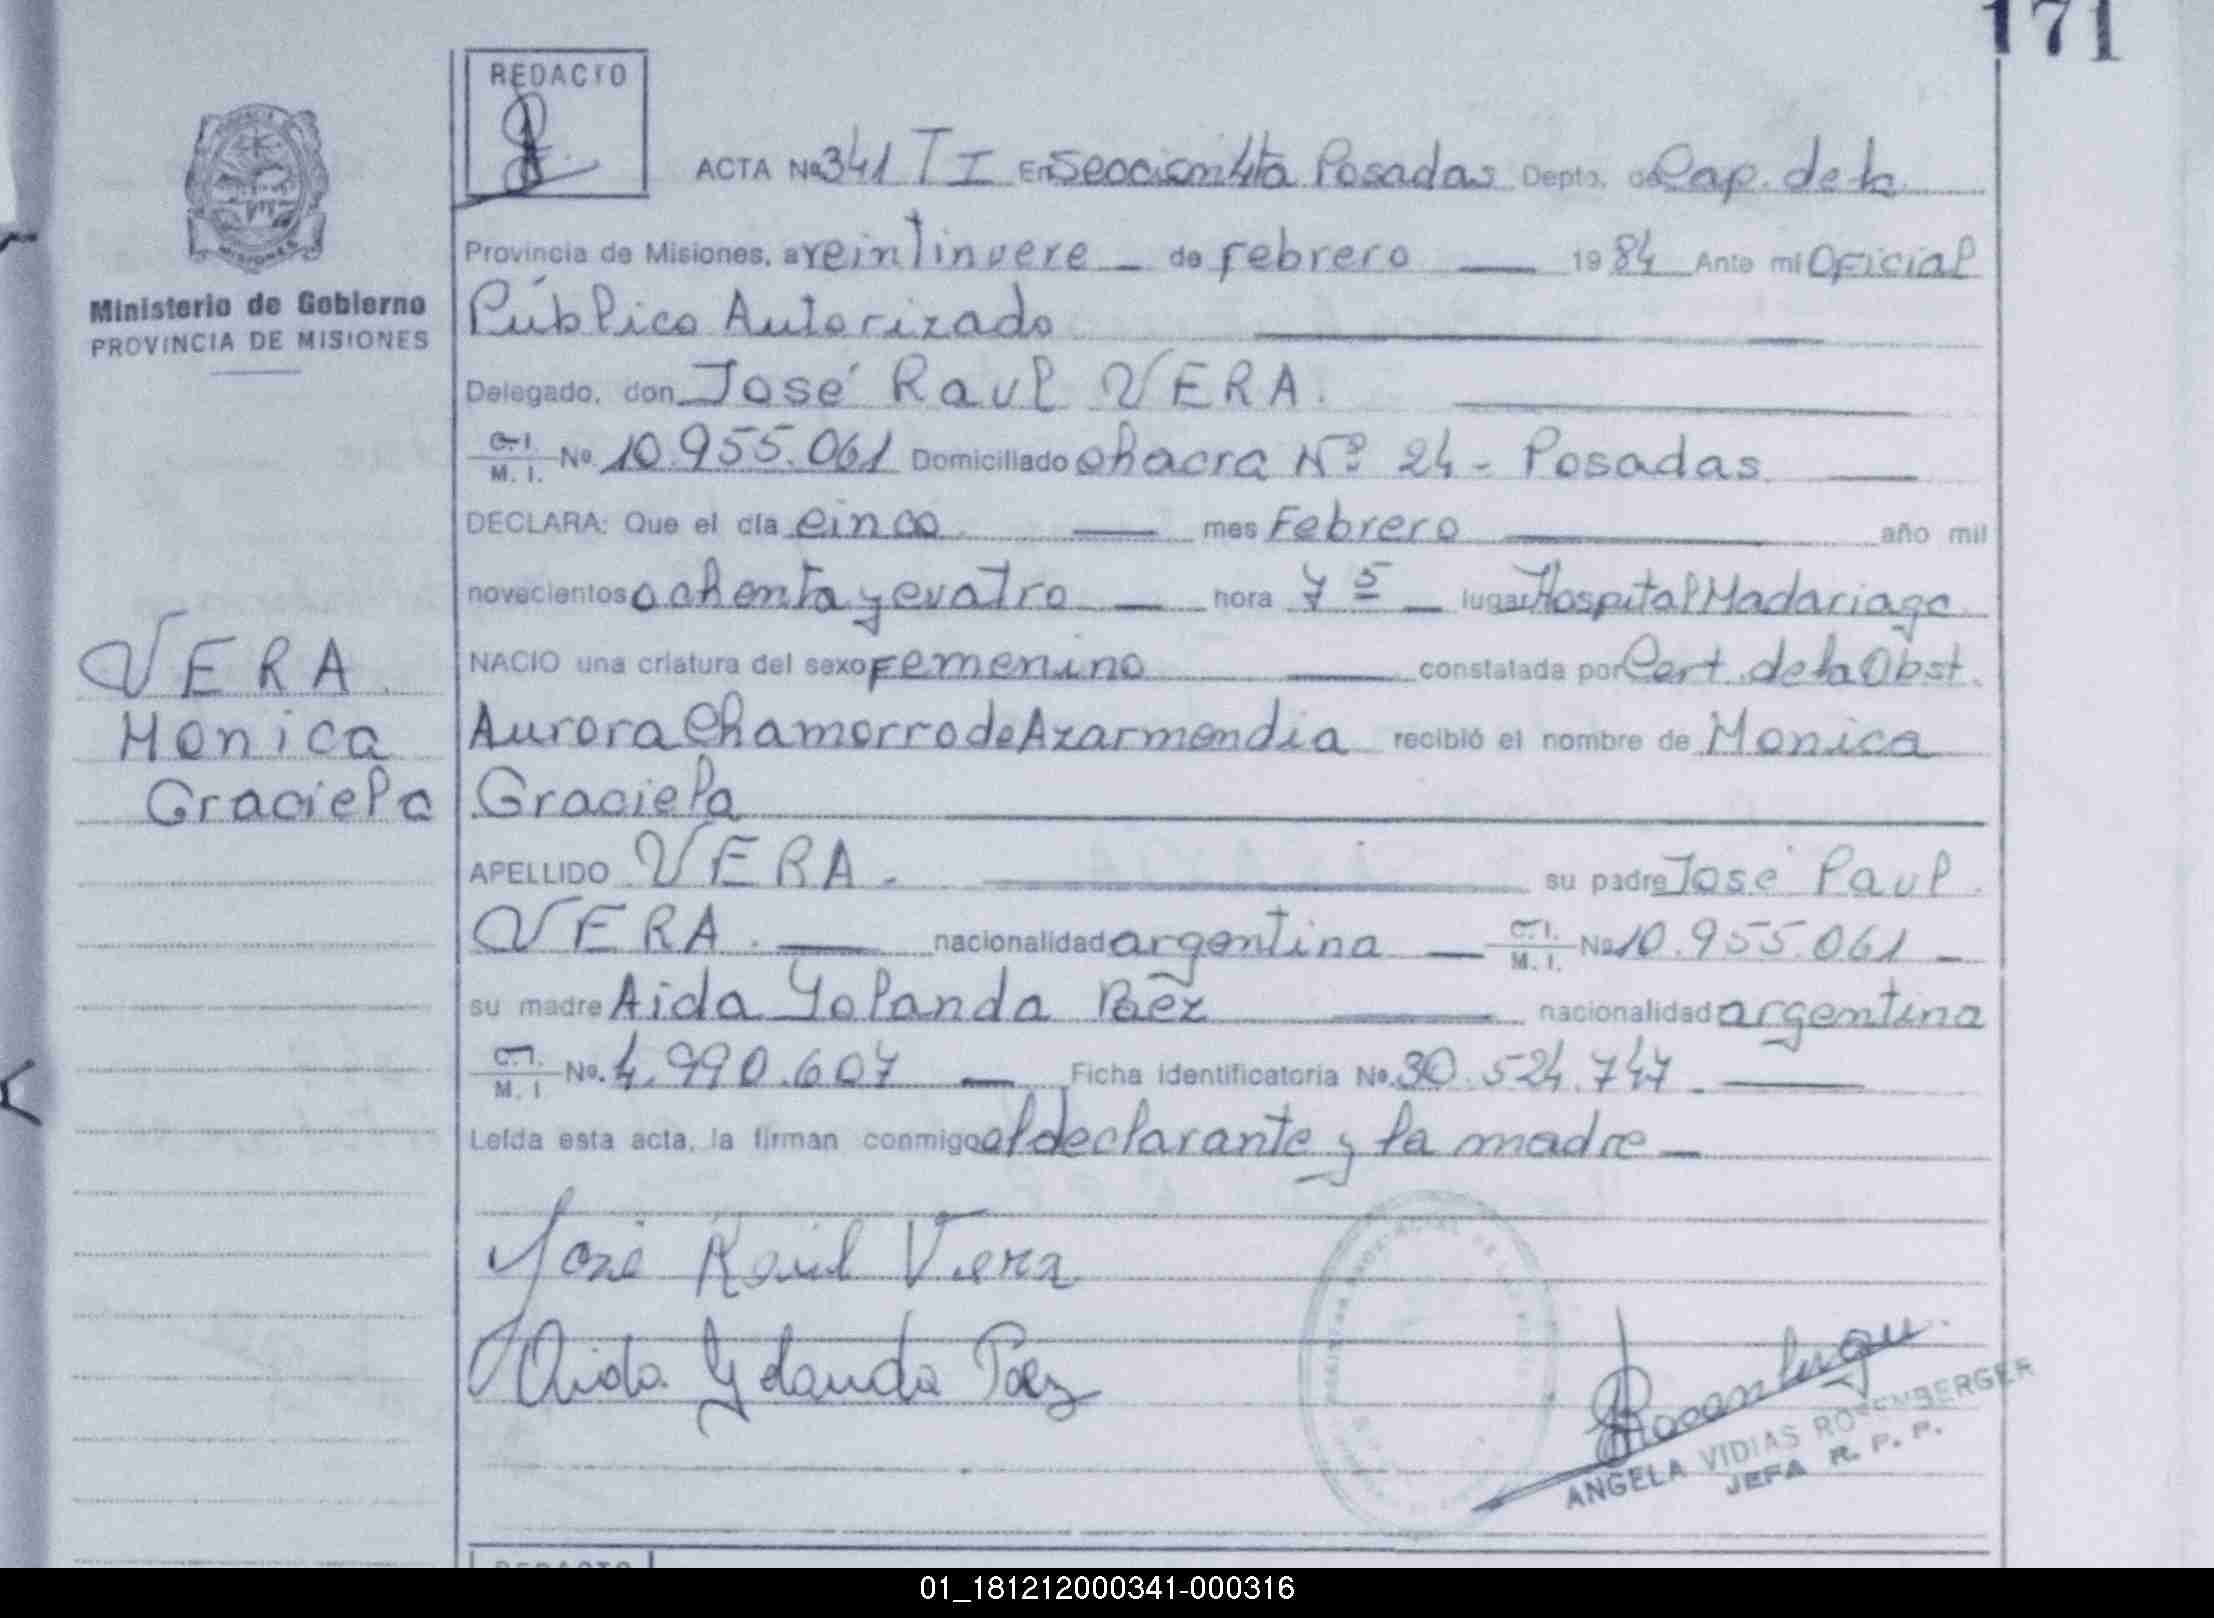 171
REDACTO
ACTA No 341 T I En Seccion 4ta Posadas Depto. de Cap. de la
Provincia de Misiones, a veintinueve de Febrero 1984 Ante mi Oficial
Público Autorizado
Delegado, don José Raul VERA.
C.I. M.I. No. 10.955.061 Domiciliado chacra Nº 24 - Posadas
DECLARA: Que el día cinco mes Febrero año mil
novecientos ochenta y cuatro hora 7 5 lugar Hospital Madariaga
NACIO una criatura del sexo Femenino constatada por Cert. de la Obst.
Aurora Chamorro de Azarmendia recibió el nombre de Monica
Graciela
APELLIDO VERA. su padre José Raul
VERA. nacionalidad argentina C.I. M.I. No 10.955.061
su madre Aida Yolanda Paéz nacionalidad argentina
C.I. M.I No. 4.990.607 Ficha Identificatoria No. 30.524.747
Leída esta acta, la firman conmigo el declarante y la madre
José Raúl Vera
Aida Yolanda Paez
ANGELA VIDIAS ROSENBERGER
JEFA R. P. P.
MISIONES
Ministerio de Gobierno
PROVINCIA DE MISIONES
VERA
Monica
Graciela
REDACTO
01_181212000341-000316